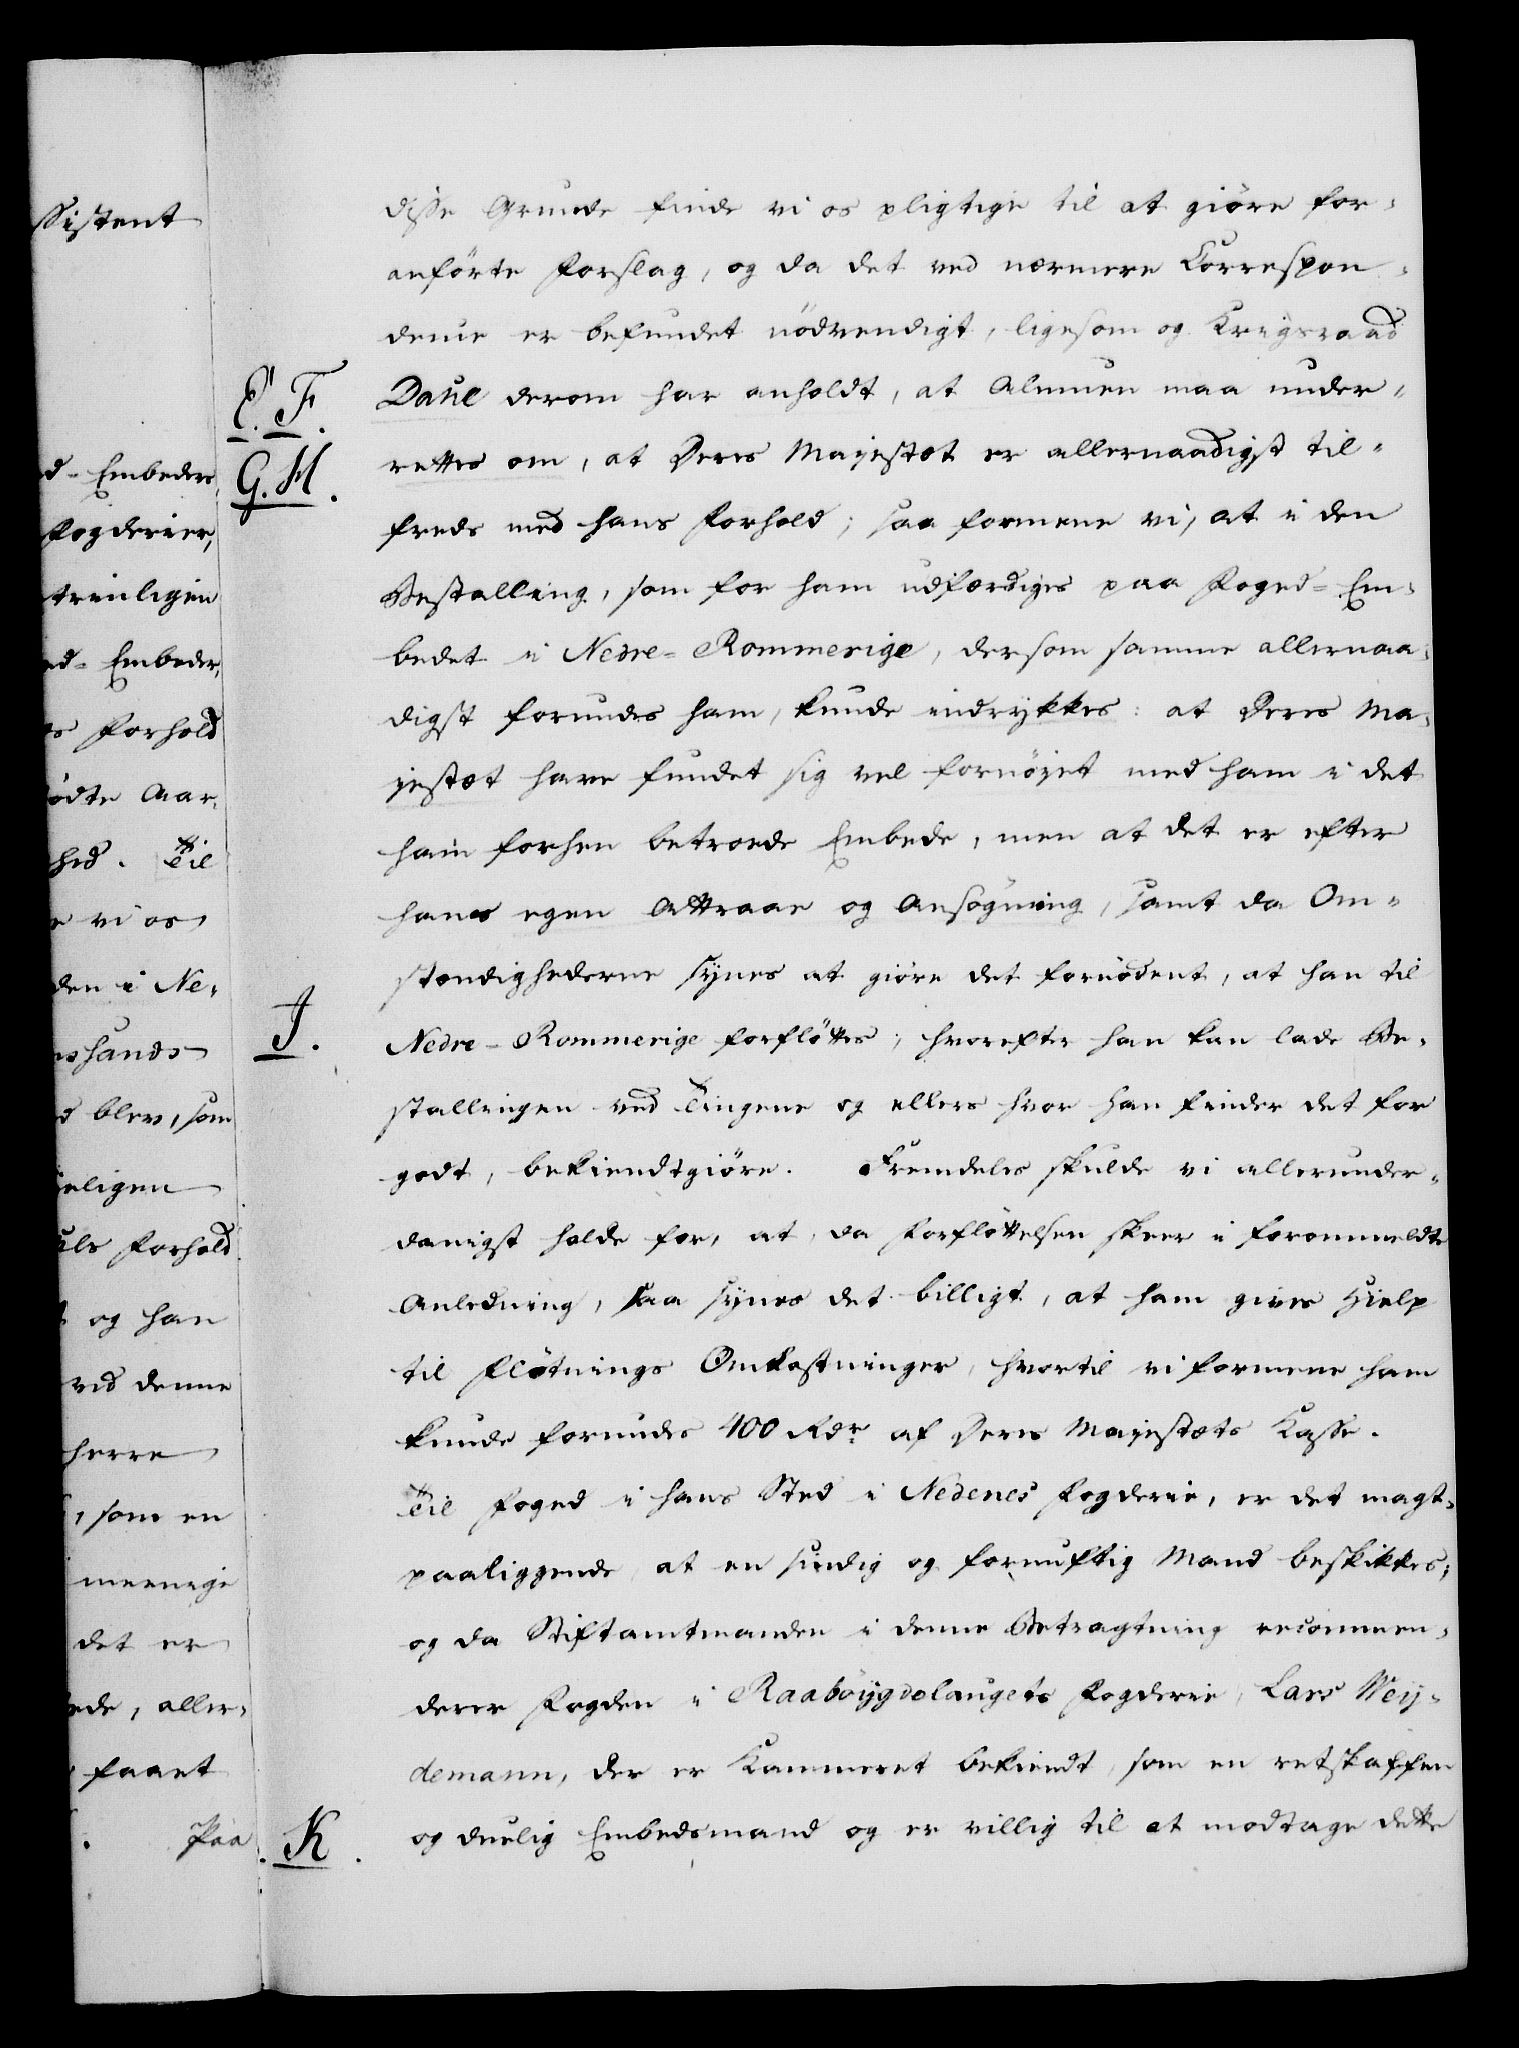 ssistent
d- Embeder,
Fogderier,
trinligen
ed- Embeder,
s Forhold
ödte Aar,
hed. Til
e vi os
den i Ne-
nshands
d blev, som
eligen
uls Forhold
og han
ved denne
herre
, som en
meenige
det er
ede, aller-
faaet
Paa
disse Grunde finde vi os pligtige til at giöre for-
anförte Forslag, og da det ved nærmere Correspon-
dence er befundet nödvendigt, ligesom og Krigsraad
E. F.
Dahl derom har anholdt, at Almuen maa under-
G. H.
rettes om, at Deres Majestæt er allernaadigst til-
freds med hans Forhold; saa formene vi, at i den
Bestalling, som for ham udfærdiges paa Foged-Em-
bedet i Nedre-Rommerige, dersom samme allernaa-
digst forundes ham, kunde indrykkes: at Deres Ma-
jestæt have fundet sig vel fornöjet med ham i det
ham forhen betroede Embede, men at det er efter
hans egen Attraae og Ansögning, samt da Om-
stændighederne synes at giöre det fornödent, at han til
J.
Nedre-Rommerige forflöttes; hvorefter han kan lade Be-
stallingen ved Tingene og ellers hvor han finder det for
godt, bekiendtgiöre. Fremdeles skulde vi allerunder-
danigst holde for, at, da Forflöttelsen skeer i forommeldte
Anledning, saa synes det billigt, at ham gives Hielp
til Flötnings Omkostninger, hvortil vi formene ham
kunde forundes 400 Rdr. af Deres Majestæts Kasse.
Til Foged i hans Sted i Nedenes Fogderie, er det magt-
paaliggende, at en sindig og fornuftig Mand beskikkes;
og da Stiftamtmanden i denne Betragtning recommen-
derer Fogden i Raabÿgdelaugets Fogderie, Lars Weÿ-
demann, der er Kammeret bekiendt, som en retskaffen
K.
og duelig Embedsmand og er villig til at modtage dette